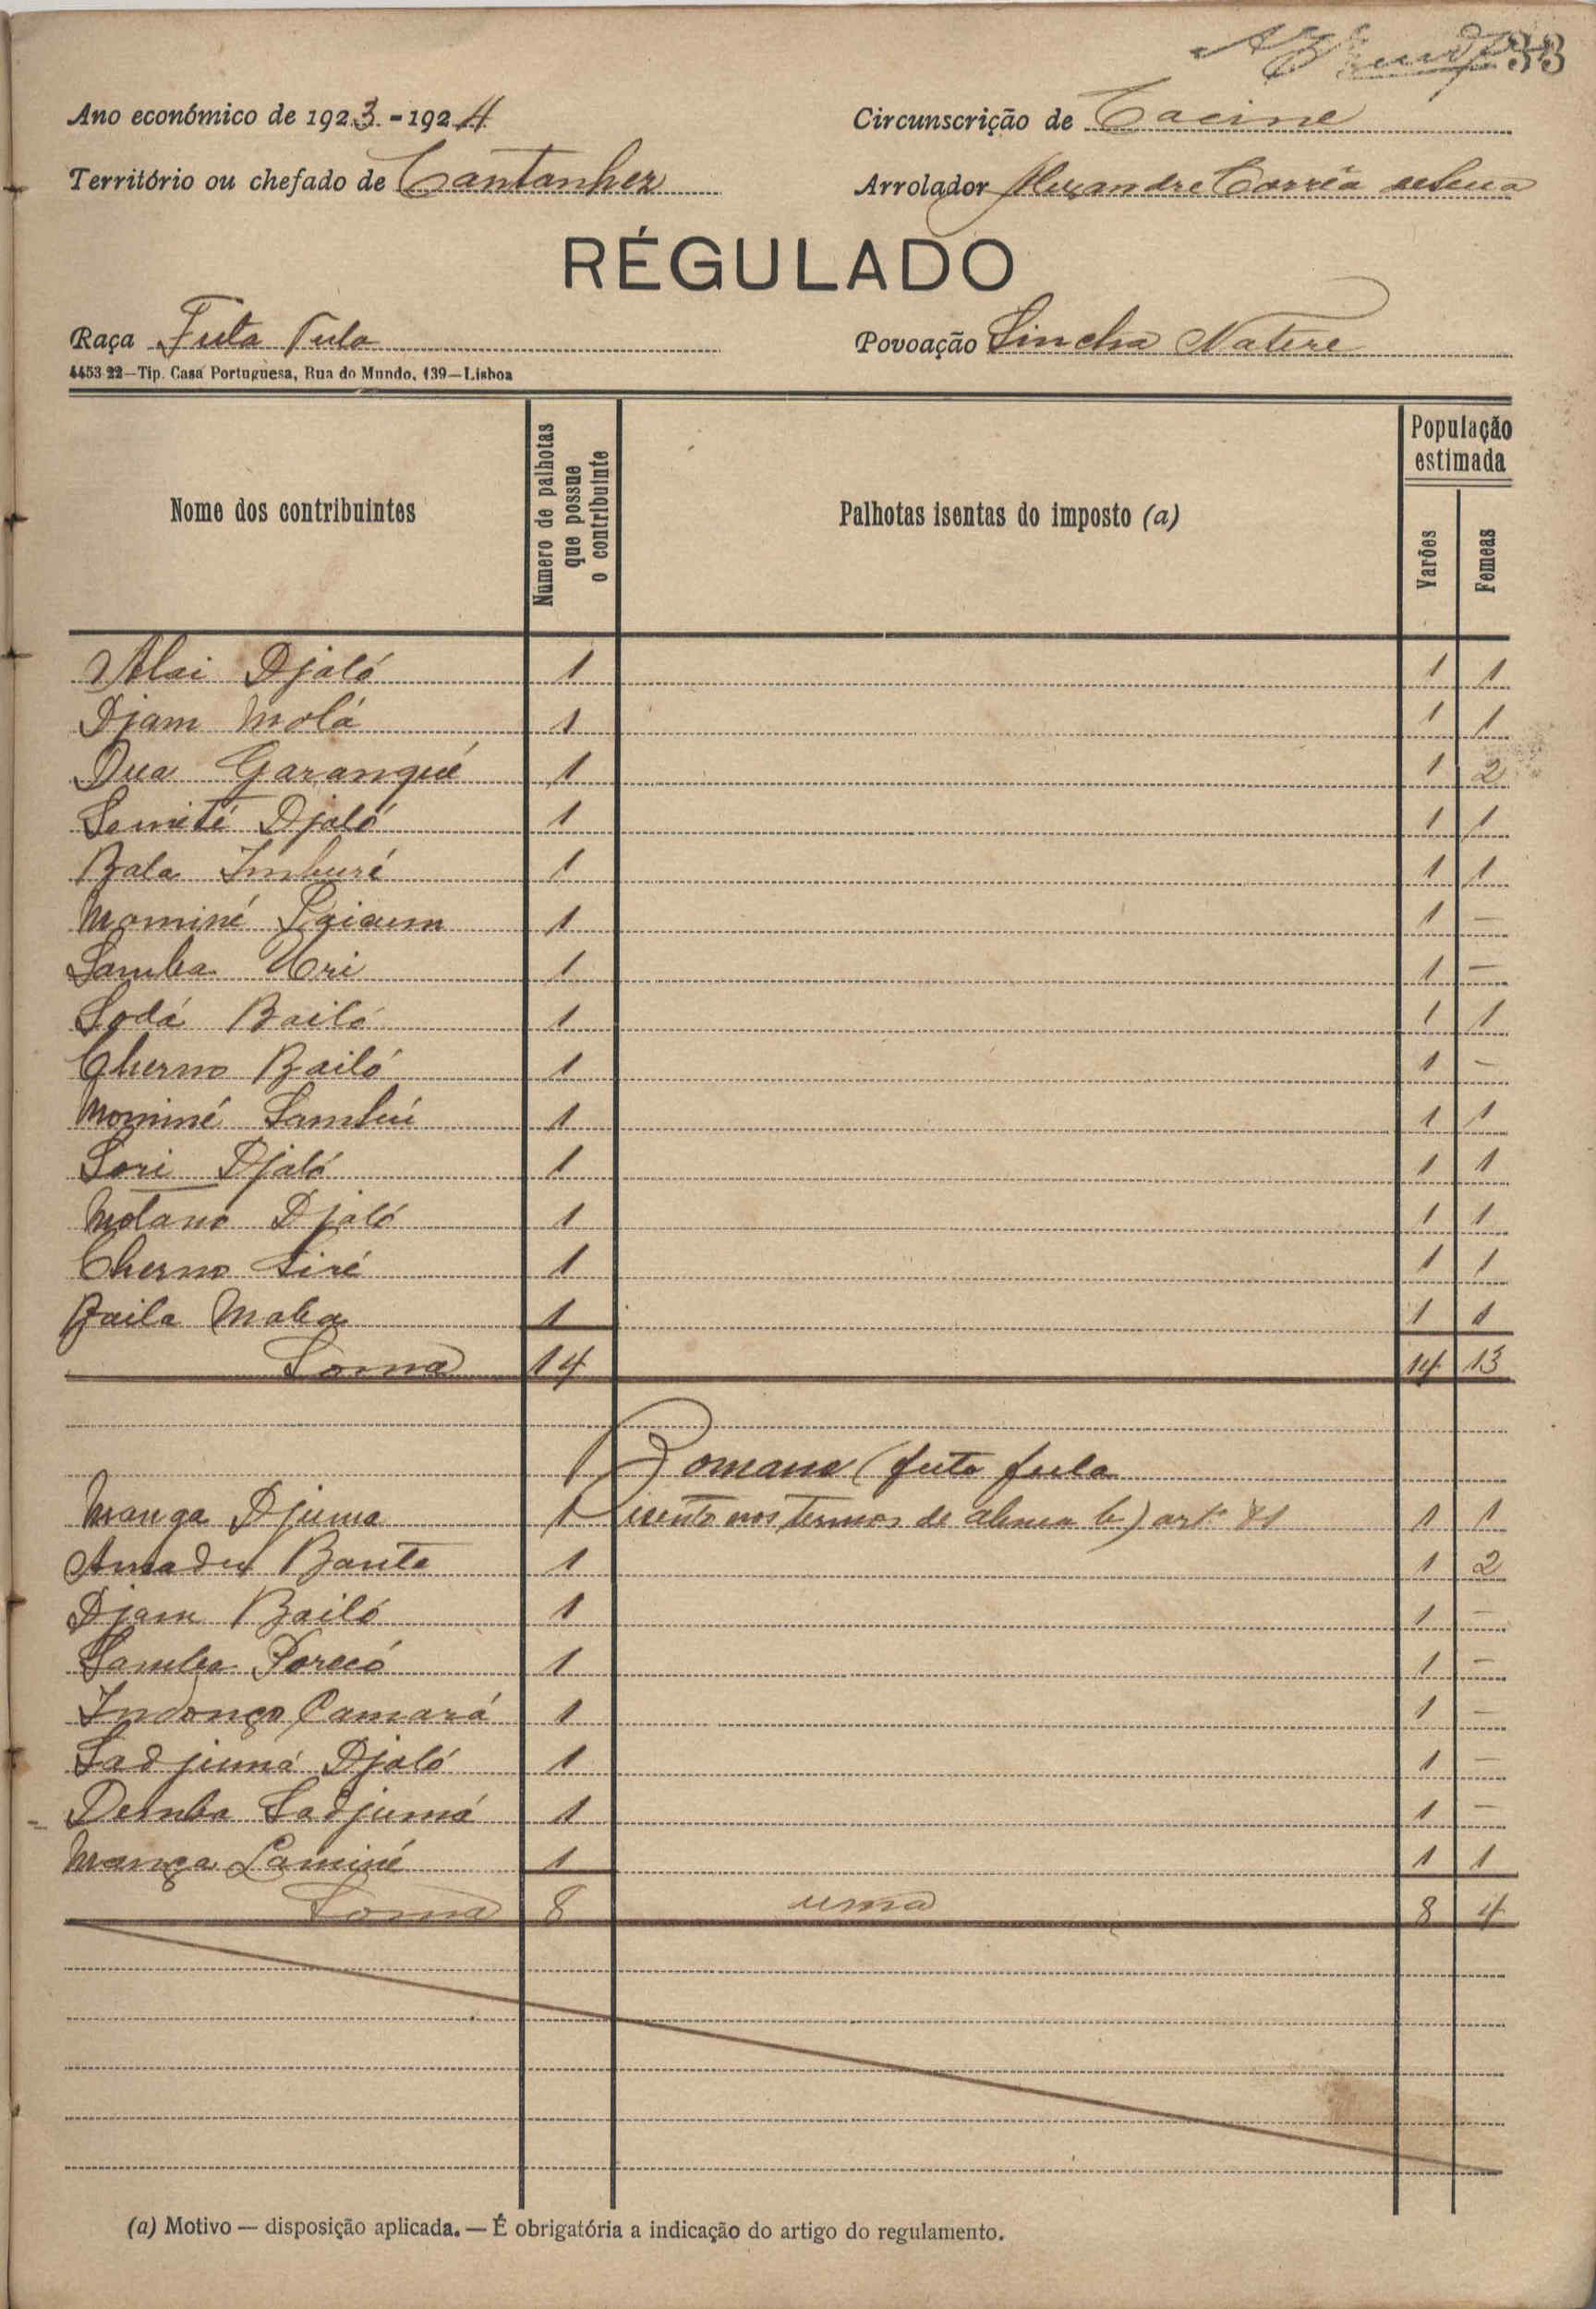 33
Ano económico de 1923-1924 Circunscrição de Cacine
Território ou chefado de Cantanhez Arrolador Alexandre Corrêa de Sena
RÉGULADO
Raça Futa Fula Povoação Sincha Natere
4453 22—Tip. Casa Portuguesa, Rua do Mundo, 139—Lisboa
Nome dos contribuintes Número de palhotas que possue o contribuinte Palhotas isentas do imposto (a) População estimada Varões Femeas
Alai Djaló 1 1 1
Djam Molá 1 1 1
Dua Garangué 1 1 2
Semeté Djaló 1 1 1
Bala Imburé 1 1 1
Mominé 1 1 —
Samba Uri 1 1 —
Sodá Bailó 1 1 1
Cherno Bailó 1 1 —
Mominé Sambú 1 1 1
Sori Djaló 1 1 1
Motaro Djaló 1 1 1
Cherno Siré 1 1 1
Baila Maba 1 1 1
Soma 14 14 13
(futa fula
Manga Djuma 1 isento nos termos de alinea b) artº 81 1 1
Amadu Banta 1 1 2
Djam Bailó 1 1 —
Samba Porecó 1 1 —
Indonço Camará 1 1 —
Sadjumá Djaló 1 1 —
Demba Sadjumá 1 1 —
Mança Laminé 1 1 1
Soma 8 uma 8 4
(a) Motivo — disposição aplicada. — É obrigatória a indicação do artigo do regulamento.